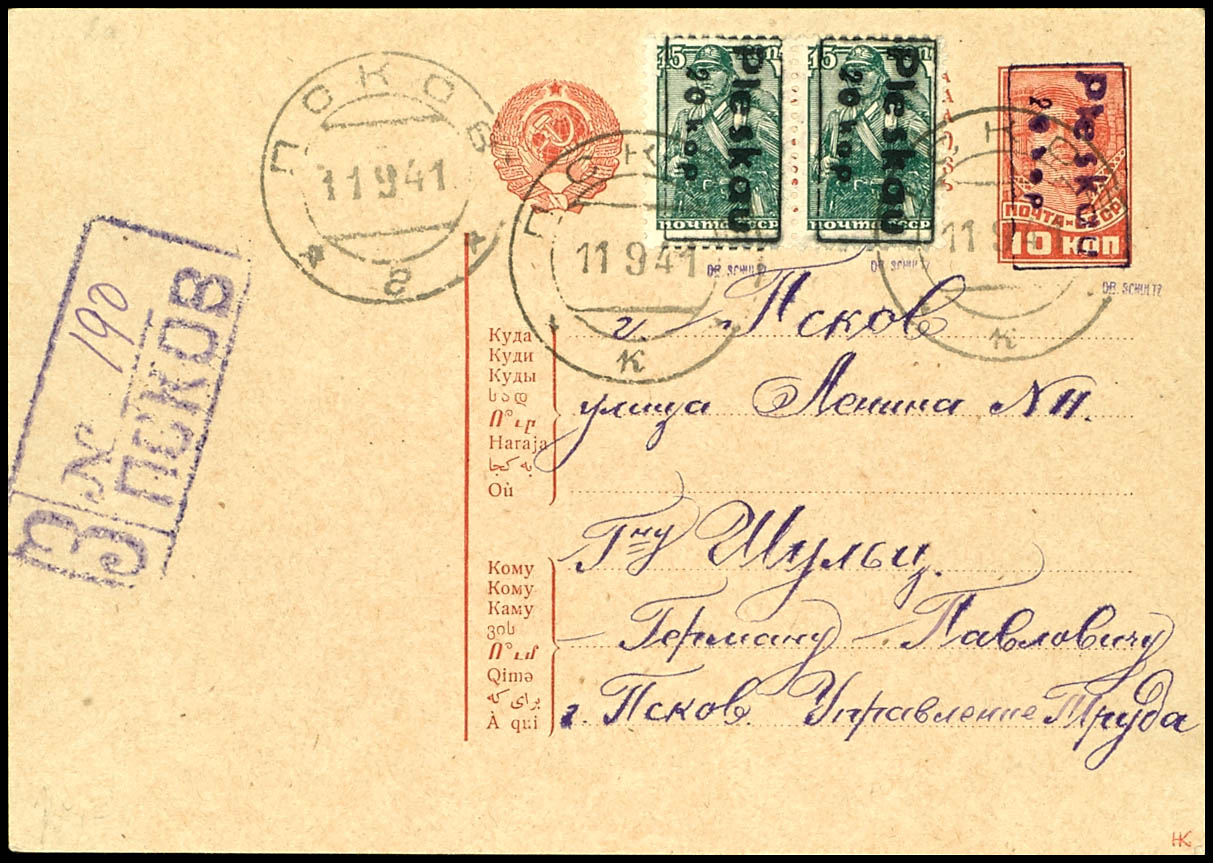 ПСКОВ
11 9 41
г
ПСКОВ
11 9 41
к
ПСКОВ
11 9 41
к
15 коп
Pleskau
20 kop
ПОЧТА СССР
15 коп
Pleskau
20 kop
ПОЧТА СССР
Pleskau
20 kop
ПОЧТА СССР
10 КОП
DR. SCHULTZ
DR. SCHULTZ
DR. SCHULTZ
З
№ 190
ПСКОВ
Куда
Куди
Куды
სად
Ո՞ւր
Haraja
به کجا
Où
г. Псков
улица Ленина N 11.
Кому
Кому
Каму
ვის
Ո՞ւմ
Qimə
برای که
À qui
Гну Шульц.
Герману Павловичу
г. Псков. Управление Труда
HK